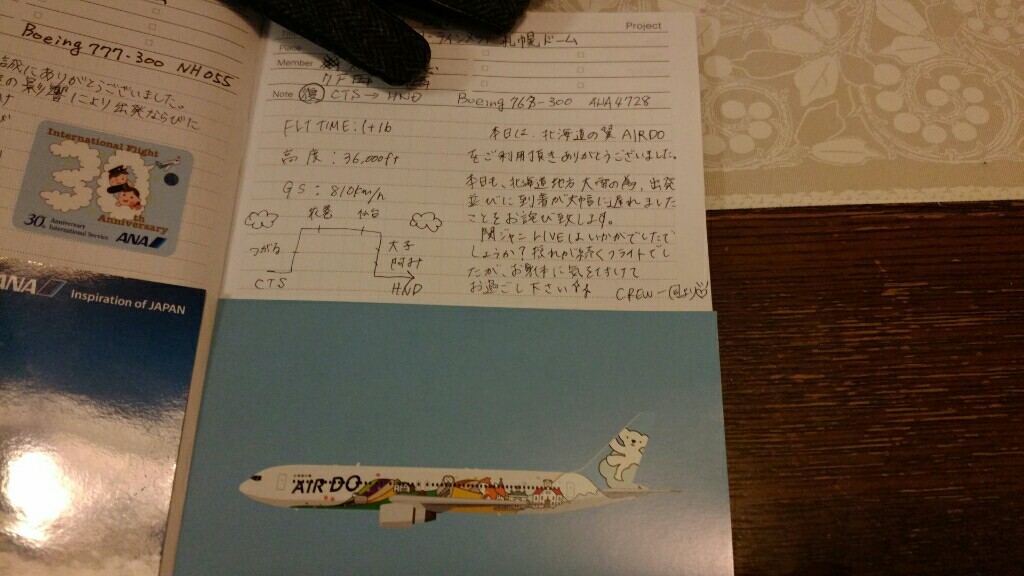 Boeing 777-300 NH055
ありがとうございました。
の影響により出発ならびに
International Flight
30th
Anniversary
30th Anniversary
International Service
ANA
ANA
Inspiration of JAPAN
Project
札幌ドーム
Place
Member
Note 復 CTS → HND Boeing 763-300 ANA4728
FLT TIME: 1+16
高度: 36,000ft
GS: 810km/h
仙台
つがる
大子
阿見
CTS
HND
本日は、北海道の翼 AIRDO
をご利用頂きありがとうございました。
本日も、北海道地方 大雪の為、出発
並びに到着が大幅に遅れました
ことをお詫び致します。
関ジャニ LIVEはいかがでしたで
しょうか? 揺れが続くフライトでし
たが、お身体に気を付けて
お過ごし下さい
CREW一同より
AIR DO